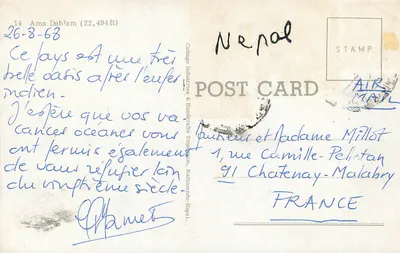 14 Ama Dablam (22,494ft)
26-8-68
Ce pays est une très
belle oasis après l'enfer
indien.
J'espère que vos va-
cances oceanes vous
ont permis également
de vous réfugier loin
du vingtième siècle.
Nepal
STAMP
POST CARD
AIR
MAIL
Monsieur et Madame Millot
1, rue Camille-Pelletan
91 Chatenay-Malabry
FRANCE